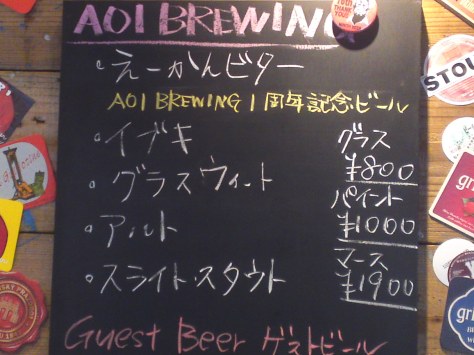 AOI BREWING
・えーかんビター
AOI BREWING 1周年記念ビール
・イブキ
グラス
¥800
・グラスウィート
パイント
¥1000
・アルト
マース
¥1900
・スライト・スタウト
Guest Beer ゲストビール
STOU